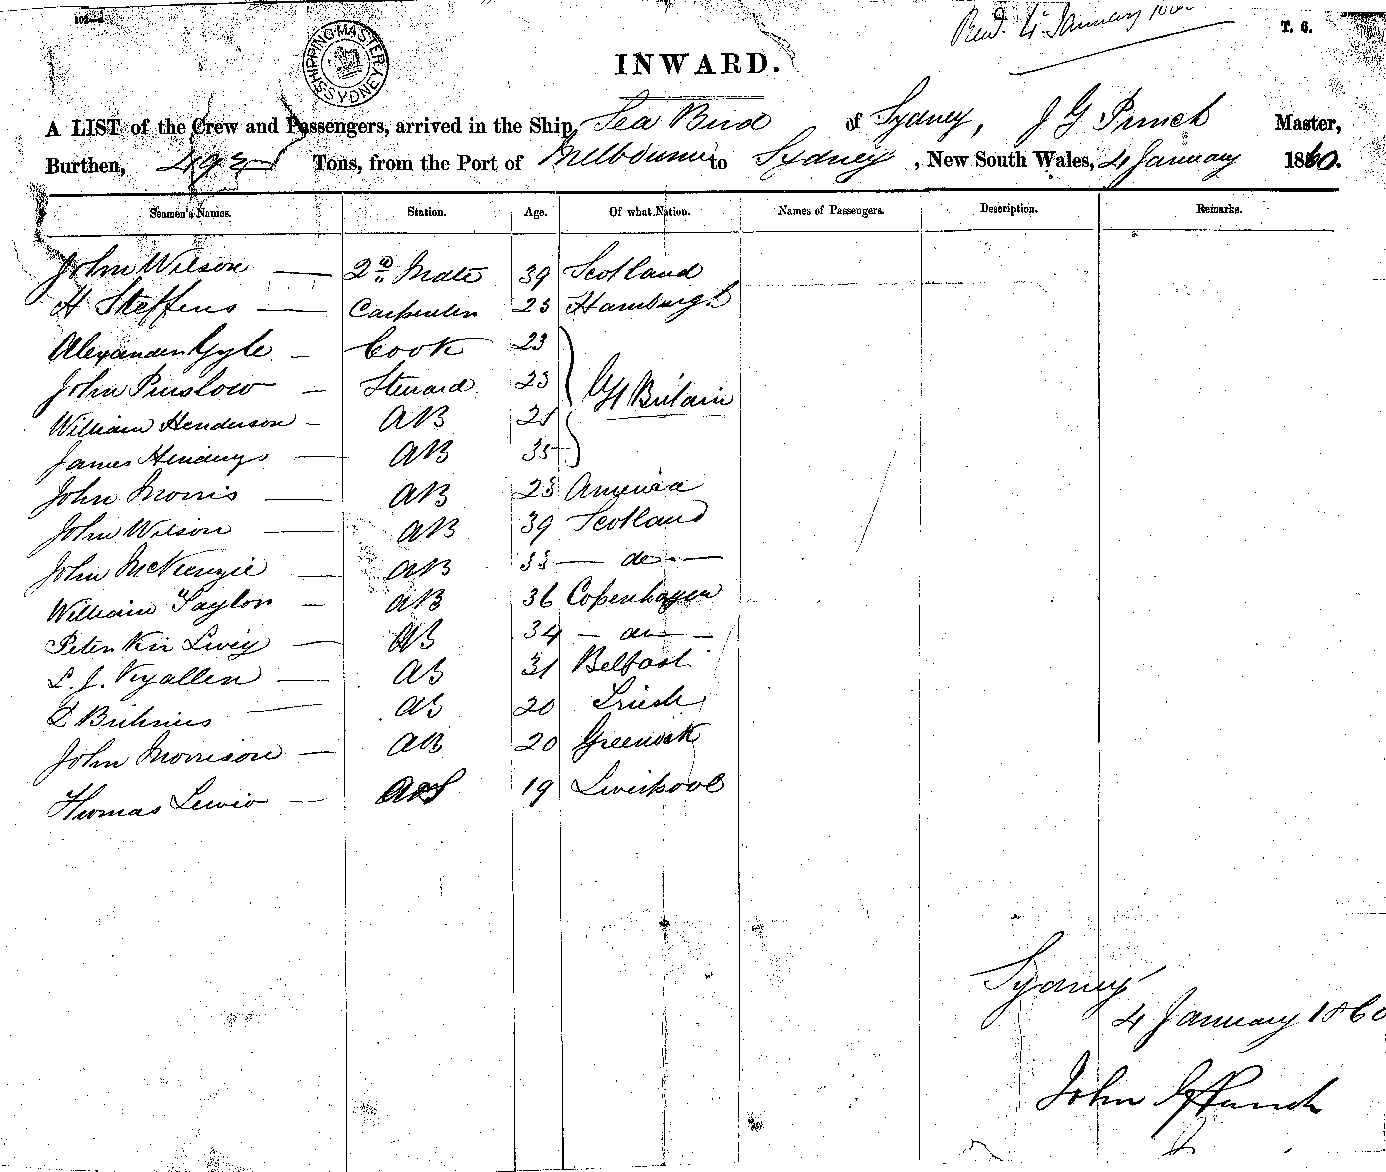 Recd. 4 January
T. 6.
SHIPPING MASTER SYDNEY
INWARD.
A LIST of the Crew and Passengers, arrived in the Ship, Sea Bird of Sydney, J G Punch Master,
Burthen, 492 Tons, from the Port of Melbourne to Sydney, New South Wales, 4 January 1860.
Seamen's Names. Station. Age. Of what Nation. Names of Passengers. Description. Remarks.
John Wilson — 2nd Mate 39 Scotland
H Steffens — Carpenter 23 Hamburgh
Alexander Gyle — Cook 23
John Purslow — Steward 23 Gt Britain
William Henderson — AB 25
James — AB 35
John Morris — AB 23 America
John Wilson — AB 39 Scotland
John McKenzie — AB 33 — do —
William Taylor — AB 36 Copenhagen
Peter — AB 34 — do —
L. J. — AB 31 Belfast
AB 20 Irish
John Morrison — AB 20 Greenock
Thomas Lewis — 19 Liverpool
Sydney
4 January 1860
John G Punch